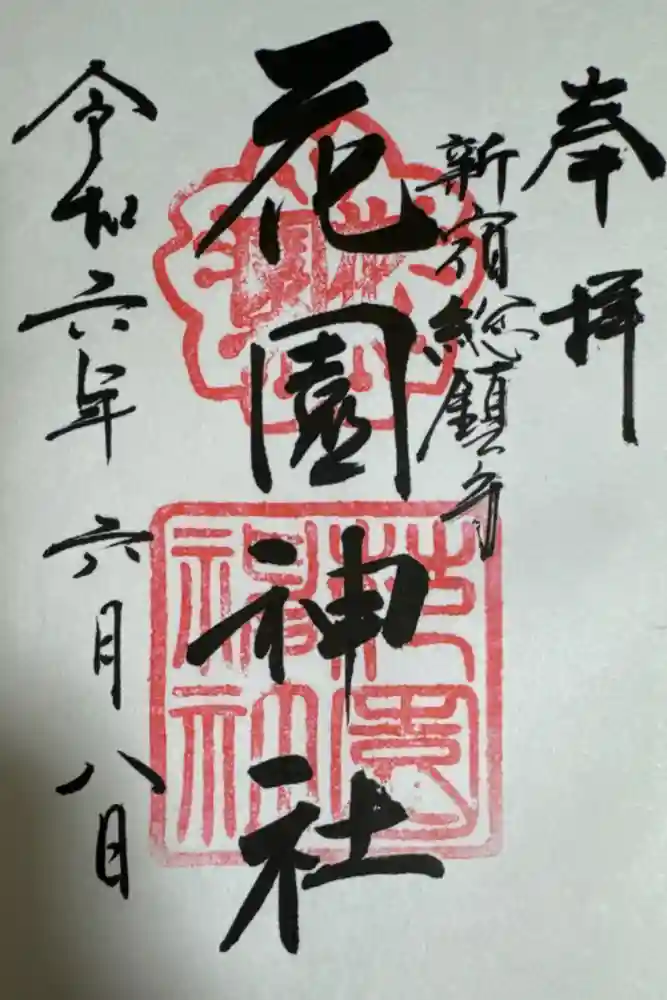 奉拝
新宿総鎮守
花園神社
令和六年六月八日
花園
花園神社